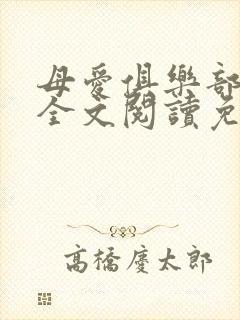 母愛俱樂部
全文閱讀免
高橋慶太郎